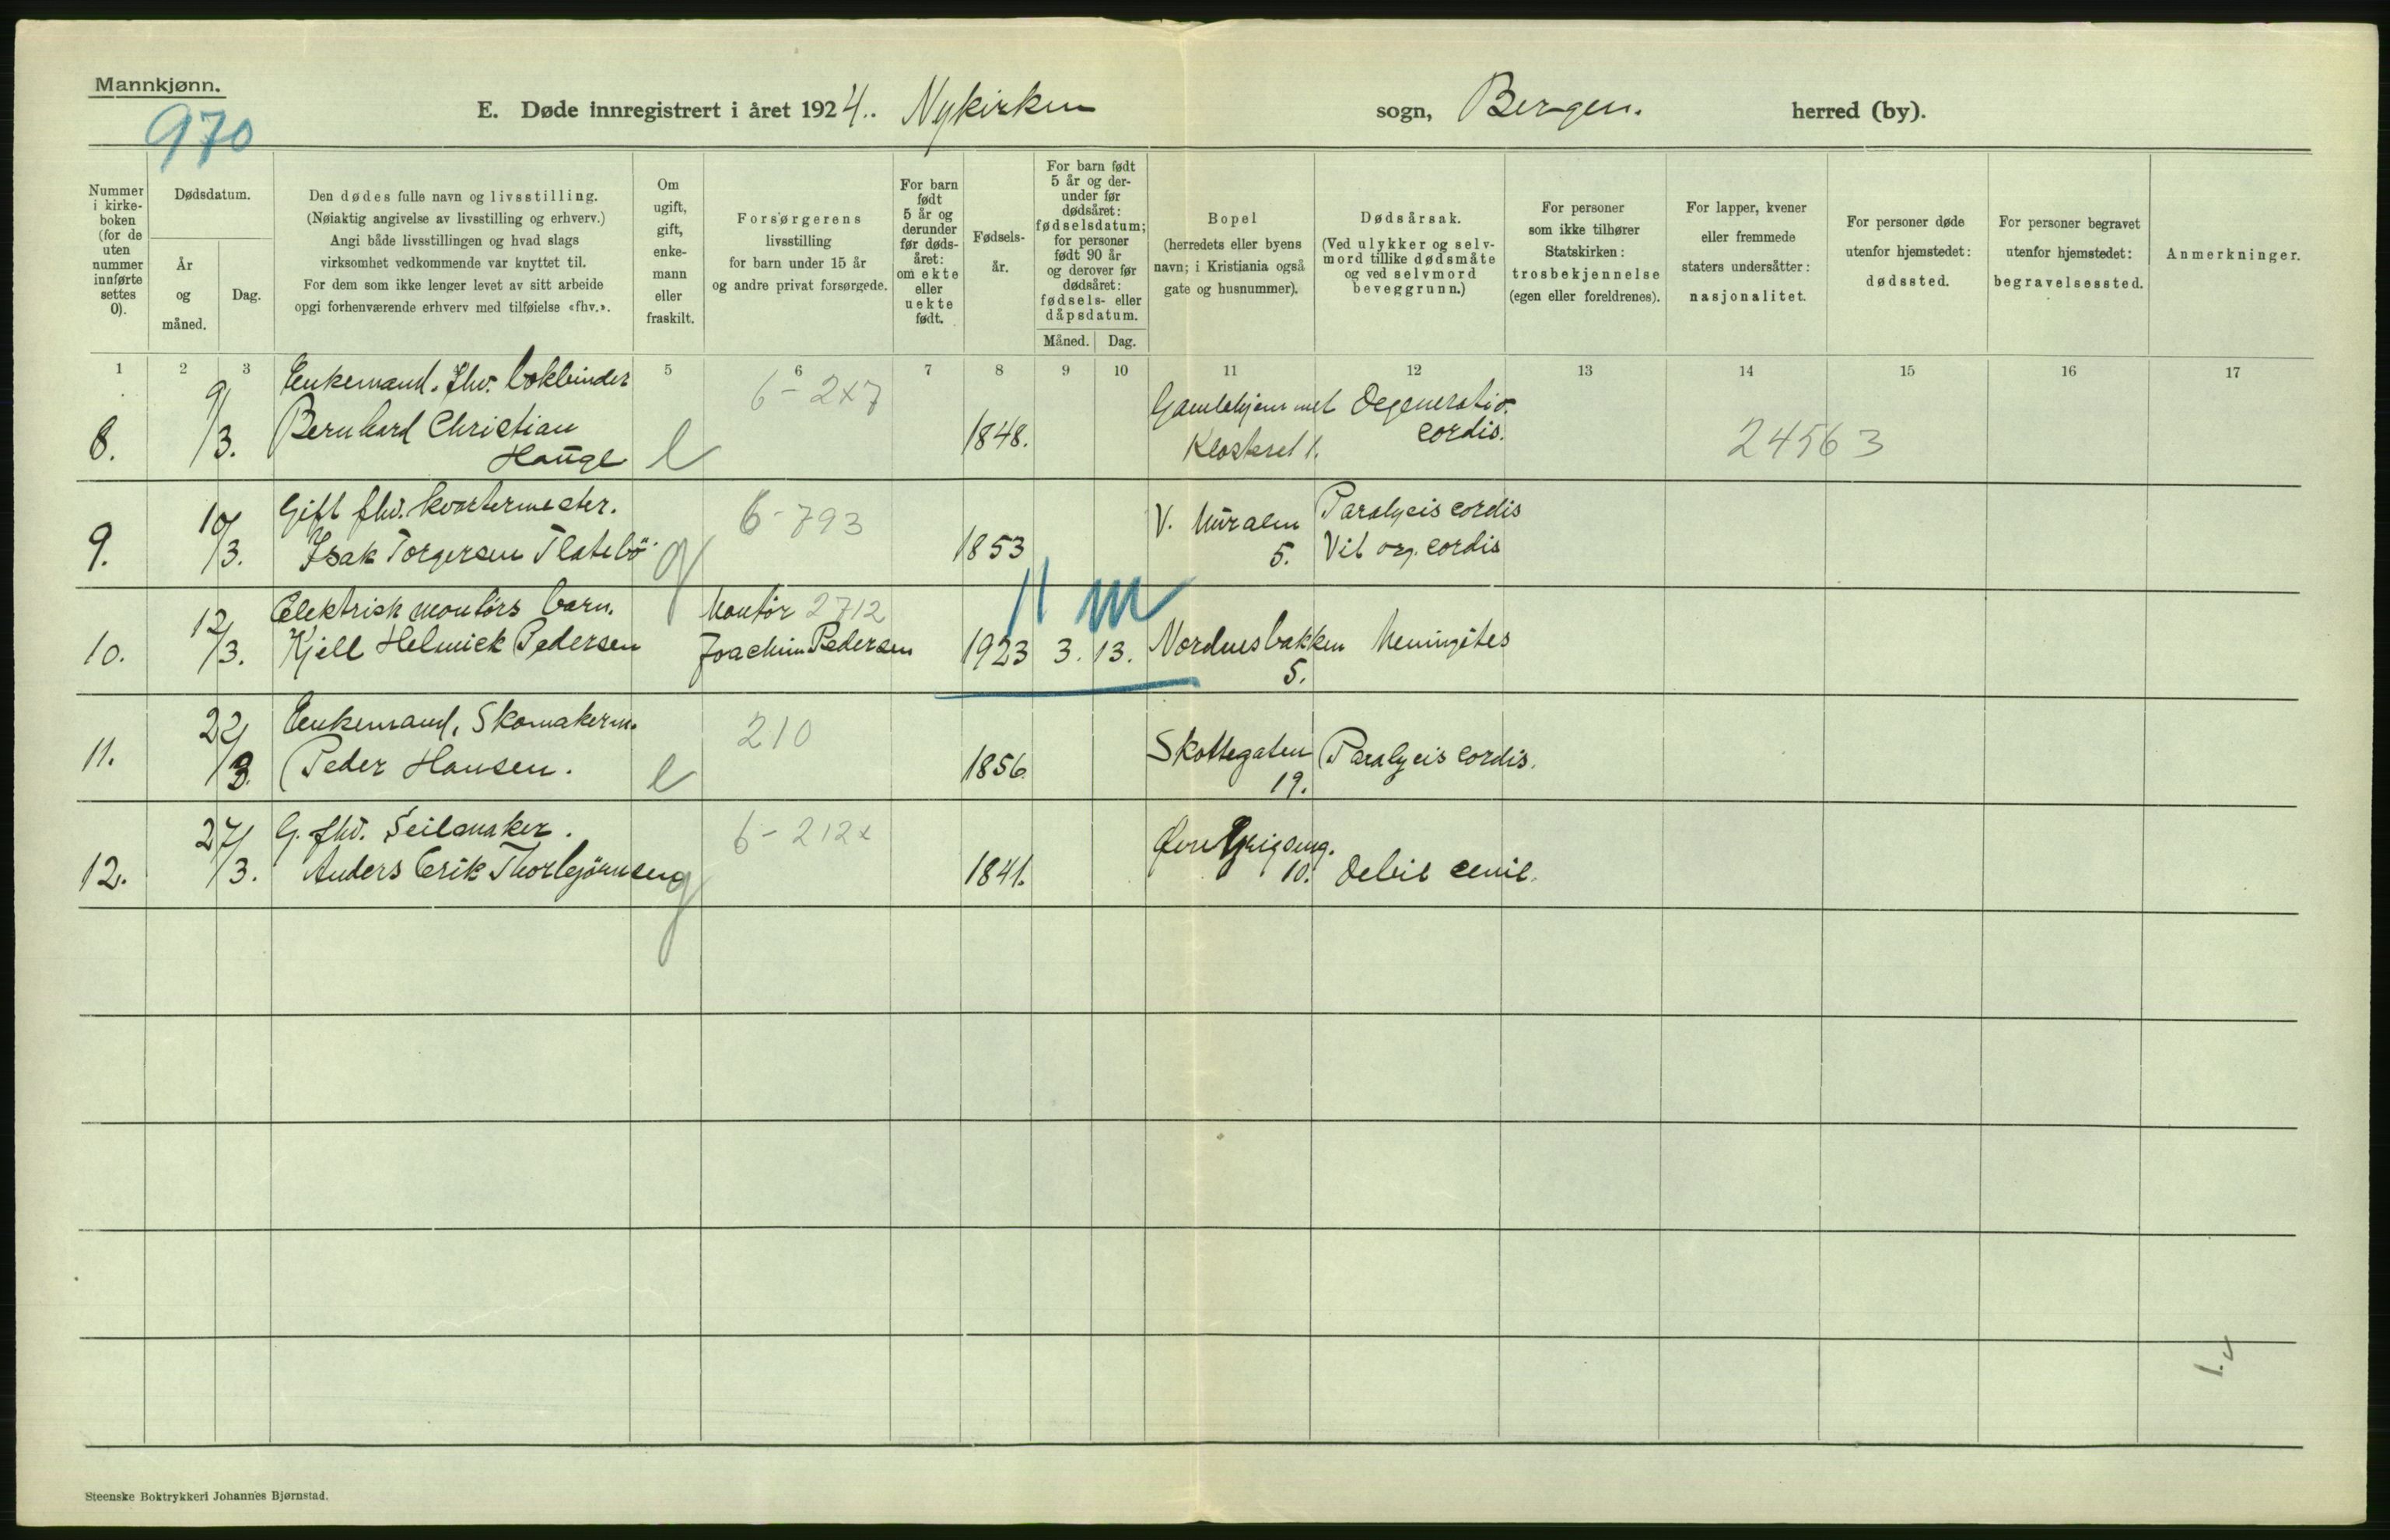 Mannkjønn.
970
E. Døde innregistrert i året 1924. Nykirken sogn, Bergen. herred (by).
Nummer i kirke- boken (for de uten nummer innførte settes 0).
Dødsdatum.
År og måned.
Dag.
Den dødes fulle navn og livsstilling.
(Nøiaktig angivelse av livsstilling og erhverv.)
Angi både livsstillingen og hvad slags
virksomhet vedkommende var knyttet til.
For dem som ikke lenger levet av sitt arbeide
opgi forhenværende erhverv med tilføielse «fhv.».
Om ugift, gift, enke- mann eller fraskilt.
Forsørgerens
livsstilling
for barn under 15 år
og andre privat forsørgede.
For barn født 5 år og derunder før døds- året: om ekte eller uekte født.
Fødsels- år.
For barn født 5 år og der- under før dødsåret: fødselsdatum; for personer født 90 år og derover før dødsåret: fødsels- eller dåpsdatum.
Måned. Dag.
Bopel
(herredets eller byens
navn; i Kristiania også
gate og husnummer).
Dødsårsak.
(Ved ulykker og selv-
mord tillike dødsmåte
og ved selvmord
beveggrunn.)
For personer
som ikke tilhører
Statskirken:
trosbekjennelse
(egen eller foreldrenes).
For lapper, kvener
eller fremmede
staters undersåtter:
nasjonalitet.
For personer døde
utenfor hjemstedet:
dødssted.
For personer begravet
utenfor hjemstedet:
begravelsessted.
Anmerkninger.
1 2 3 5 6 7 8 9 10 11 12 13 14 15 16 17
8. 9/3. Enkemand. fhv. bokbinder
Bernhard Christian
Hauge e 6-2x7 1848. Gamlehjemmet
Klosteret 1. Degeneratio
cordis. 24563
9. 10/3. Gift fhv. kvartermester.
Isak Torgersen Flatebö g 6-793 1853 V. Muralm
5. Paralysis cordis
Vit org. cordis
10. 12/3. Elektrisk montörs barn.
Kjell Helmick Pedersen Montör 2712
Joachim Pedersen 1923 3. 13. 11 m Nordnesbakken
5. Meningites
11. 22/3. Enkemand, Skomakerm.
Peder Hansen. e 210 1856 Skottegaten
19. Paralysis cordis.
12. 27/3. G. fhv. Seilmaker.
Anders Erik Thorbjörnsen g 6-212x 1841.
10. Debil senil.
Steenske Boktrykkeri Johannes Bjørnstad.